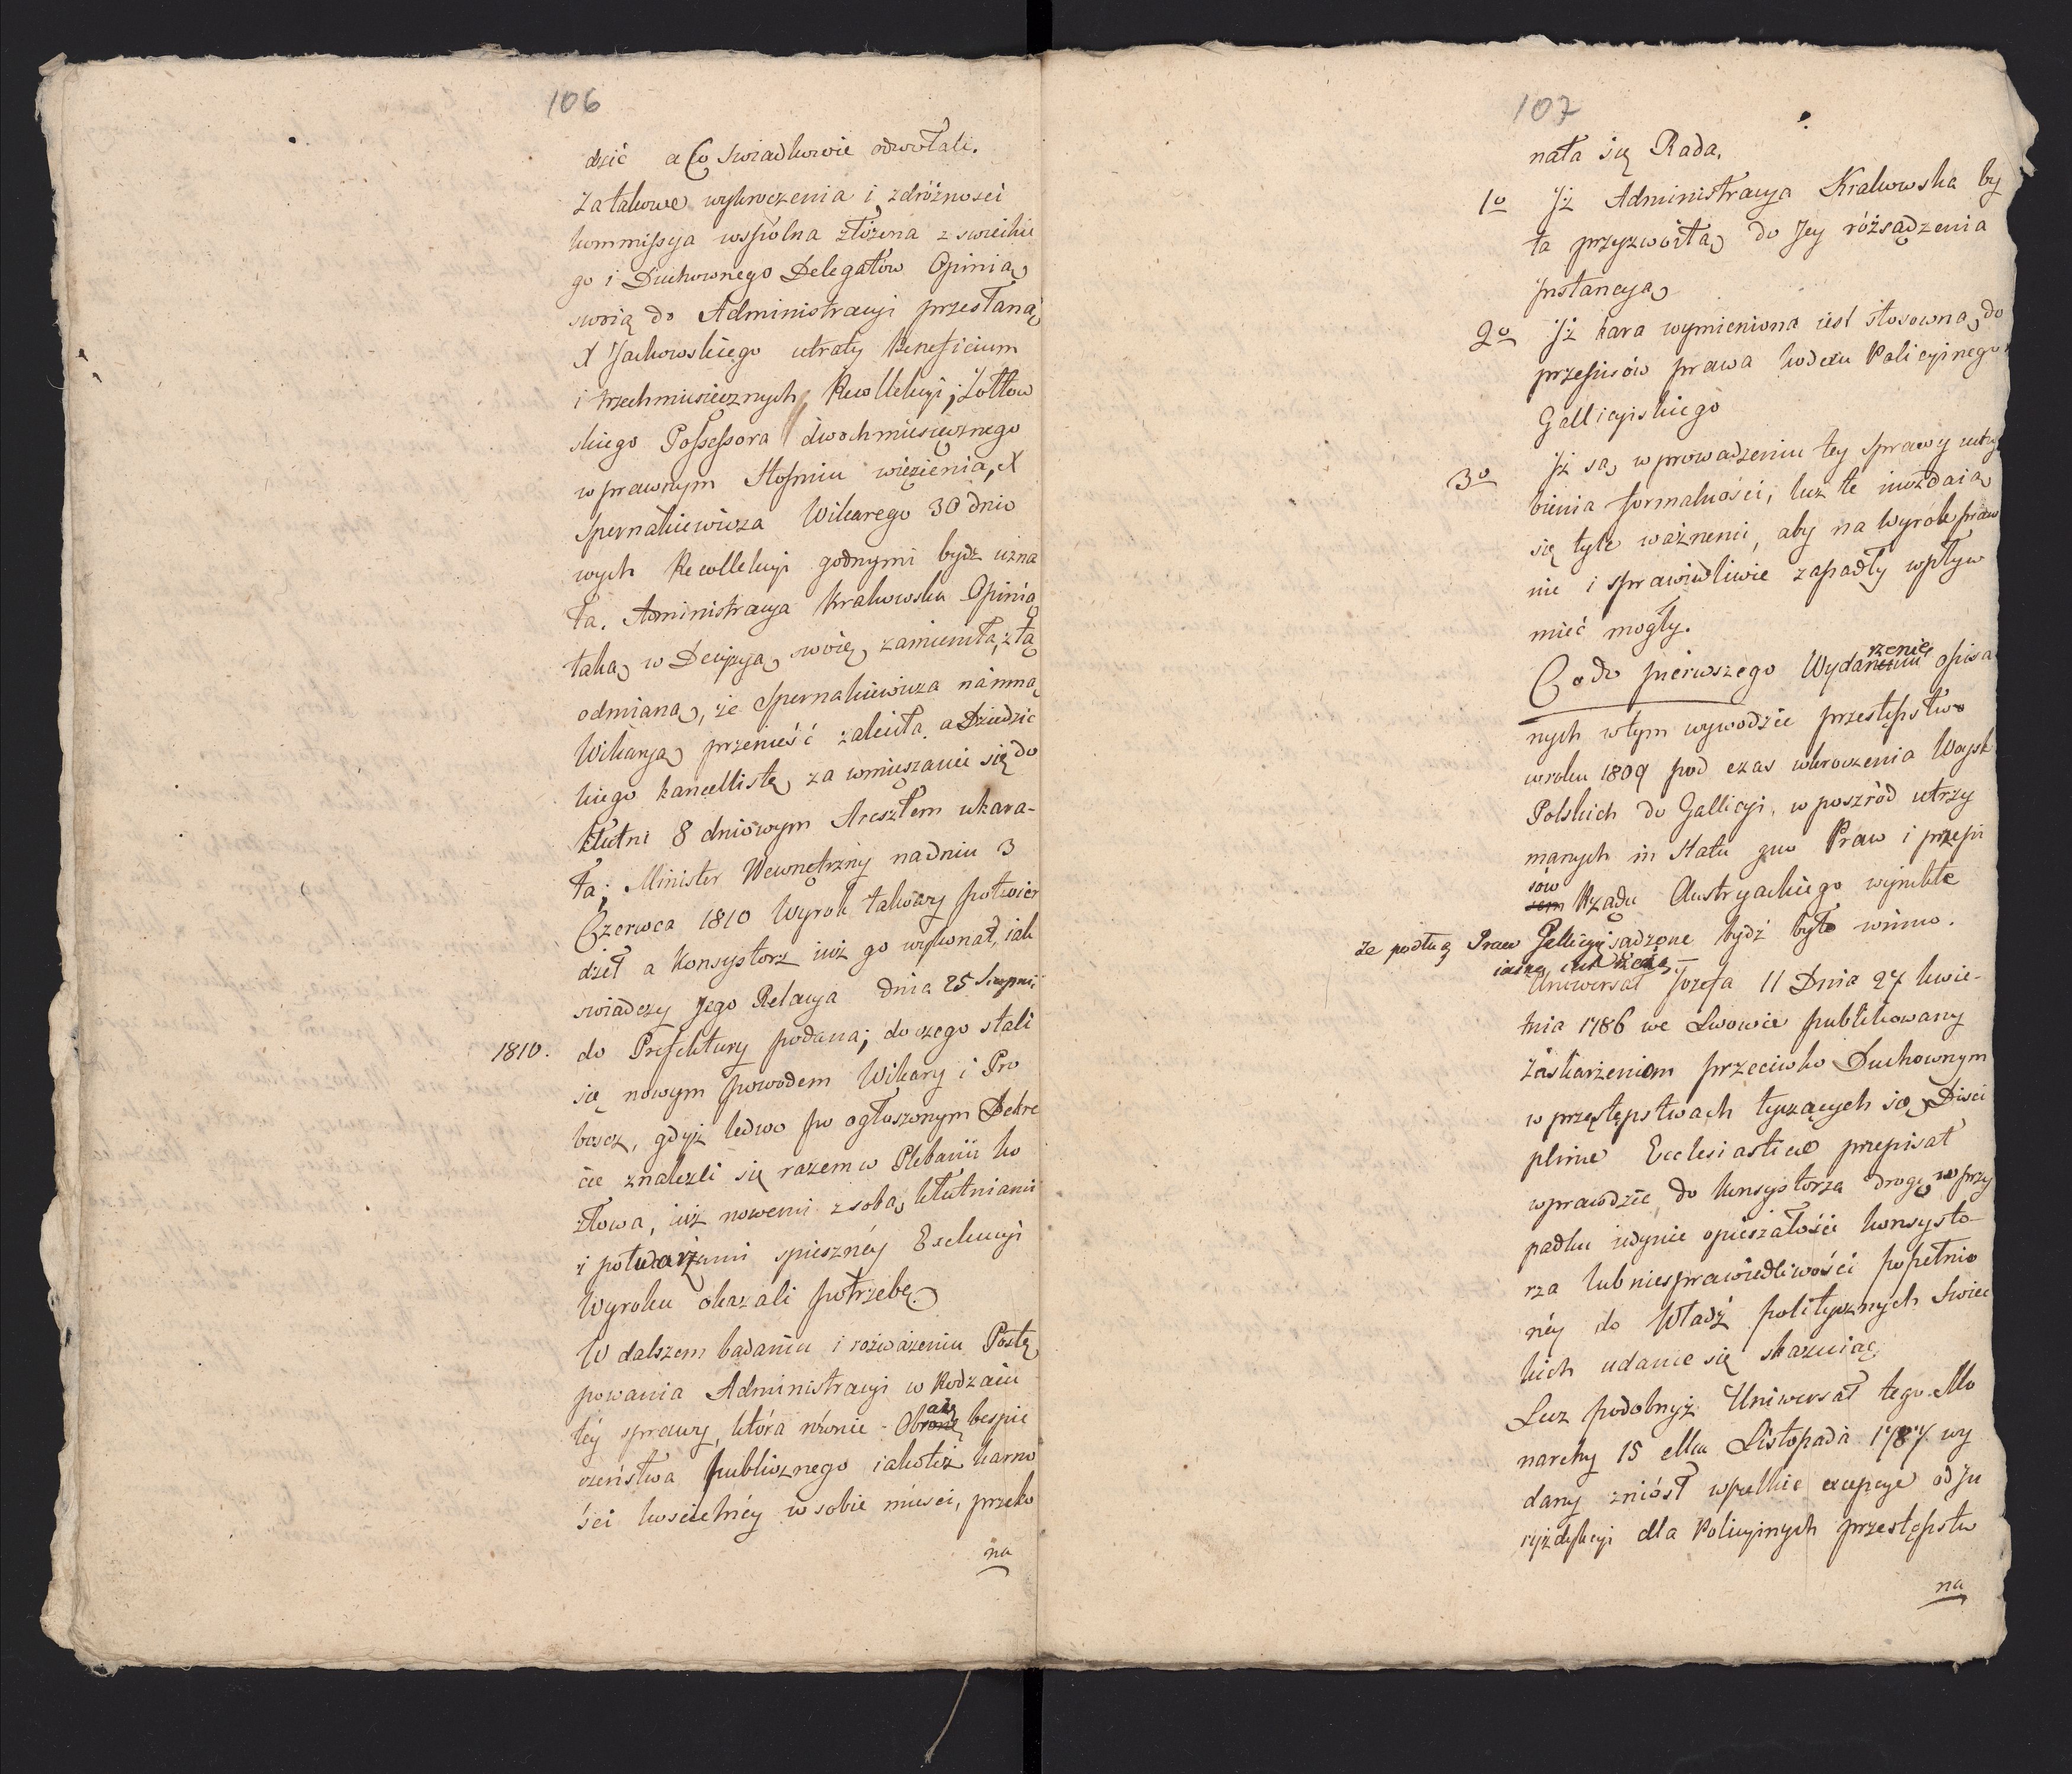 106
dzić a Co swiadkowie odwołali.
Za takowe wykroczenia i zdróżnosci
kommissya wspólna złożona z swieckie
go i Duchownego Delegatów Opinią
swoią do Administracyi przesłaną
X Jackowskiego utraty Beneficium
i trzechmiesiecznych Rekollekcyi; Zołtow
skiego Possessora dwochmiesięcznego
w prawnym Stopniu więzienia, X
Spernakiewicza Wikarego 30 dnio
wych Rekollekcyi godnymi bydz uzna
ła. Administracya Krakowska Opinią
taką w Decyzyą swoię zamieniła, z tą
odmianą, że Spernakiewicza na inną
Wikaryą przenieść zaleciła. a Dziedzic
kiego kancellistę za wmieszanie się do
kłutni 8 dniowym Aresztem ukara-
ła; Minister Wewnętrzny na dniu 3
Czerwca 1810 Wyrok takowy potwier
dził a Konsystorz iuż go wykonał, iak
swiadczy Jego Relacya dnia 25 Sierpnia
1810. do Prefektury podana; do czego stali
się nowym powodem Wikary i Pro
boscz, gdyż ledwo po ogłoszonym Dekre
cie znalezli się razem w Plebanii Ko
złowa, iuż nowemi z sobą kłutniami
i potwarzami spieszney Exekucyi
Wyroku okazali potrzebę
W dalszem badaniu i rozważeniu Postę
powania Administracyi w Rodzaiu
téy sprawy, która równie Obrazę bespie
czeństwa publicznego iakoteż karno
ści koscielnéy w sobie miesci, przeko
na
107
nała się Rada,
1o Iż Administracya Krakowska by
ła przyzwoitą do Jey rózsądzenia
Jnstancyą
2o Iż kara wymieniona iest stosowną do
przepisów prawa kodexu Policyinego
Gallicyiskiego
3o Iż są w prowadzeniu tey Sprawy uchy
bienia formalności, lecz te niezdaią
się tyle ważnemi, aby na Wyrok praw
nie i sprawiedliwie zapadły wpływ
mieć mogły.
Co do pierwszego Wydarzenie opisa
nych w tym wywodzie przestępstw
w roku 1809 pod czas wkroczenia Woysk
Polskich do Gallicyi, w poszród utrzy
manych in Statu quo Praw i przepi
sów Rządu Austryackiego wynikłe
że podług Praw Gallicyi sądzone bydź było winno.
Uniwersał Jozefa II Dnia 27 kwie-
tnia 1786 we Lwowie publikowany
Zaskarżeniom przeciwko Duchownym
w przęstępstwach tyczących się Disci
plinae Ecclesiasticae przepisał
wprawdzie do Konsystorza drogę w przy
padku iedynie opieszałości konsysto-
rza lub niesprawiedliwości popełnio
néy do Władz politycznych Swiec
kich udanie się skazuiąc
Lecz podobnyż Uniwersał tego Mo
narchy 15 Listopada 1787 wy
dany zniósł wszelkie excepcye od Ju
ryzdykcyi dla Policyinych przestępstw
na